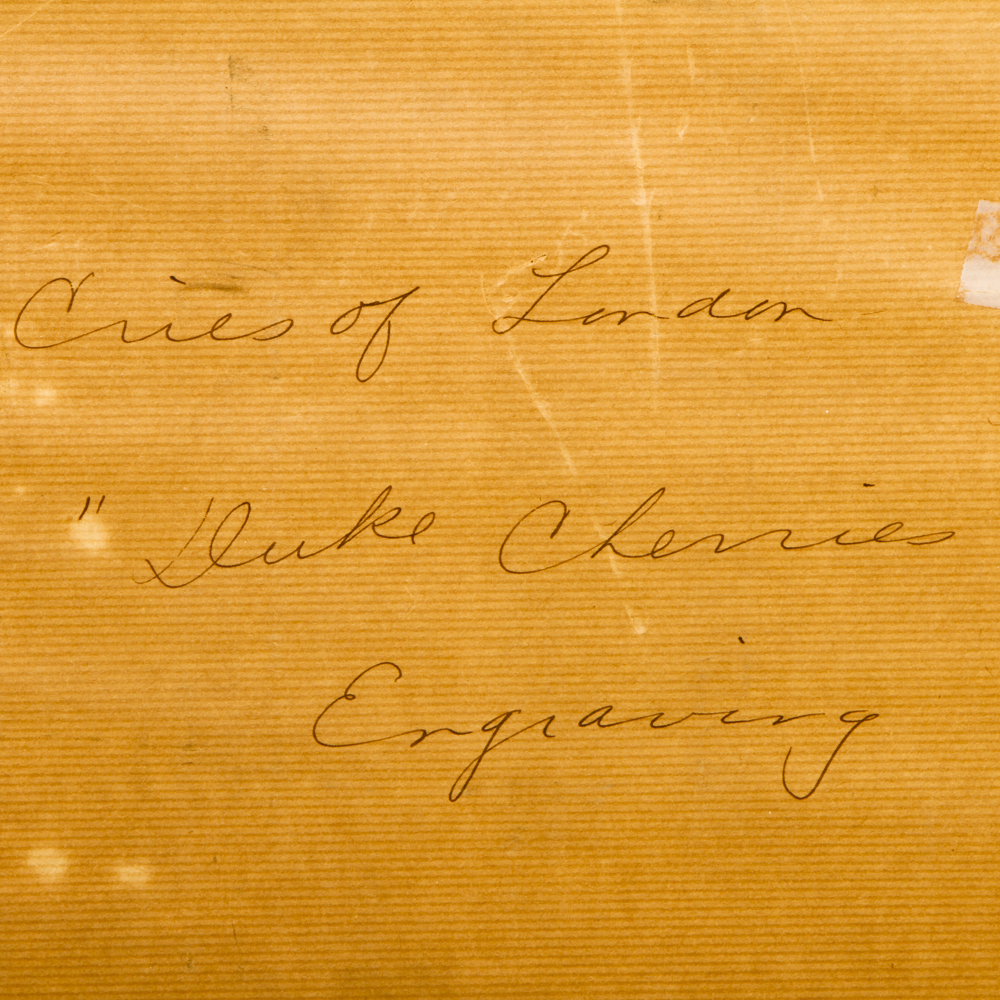 Cries of London
" Duke Cherries
Engraving